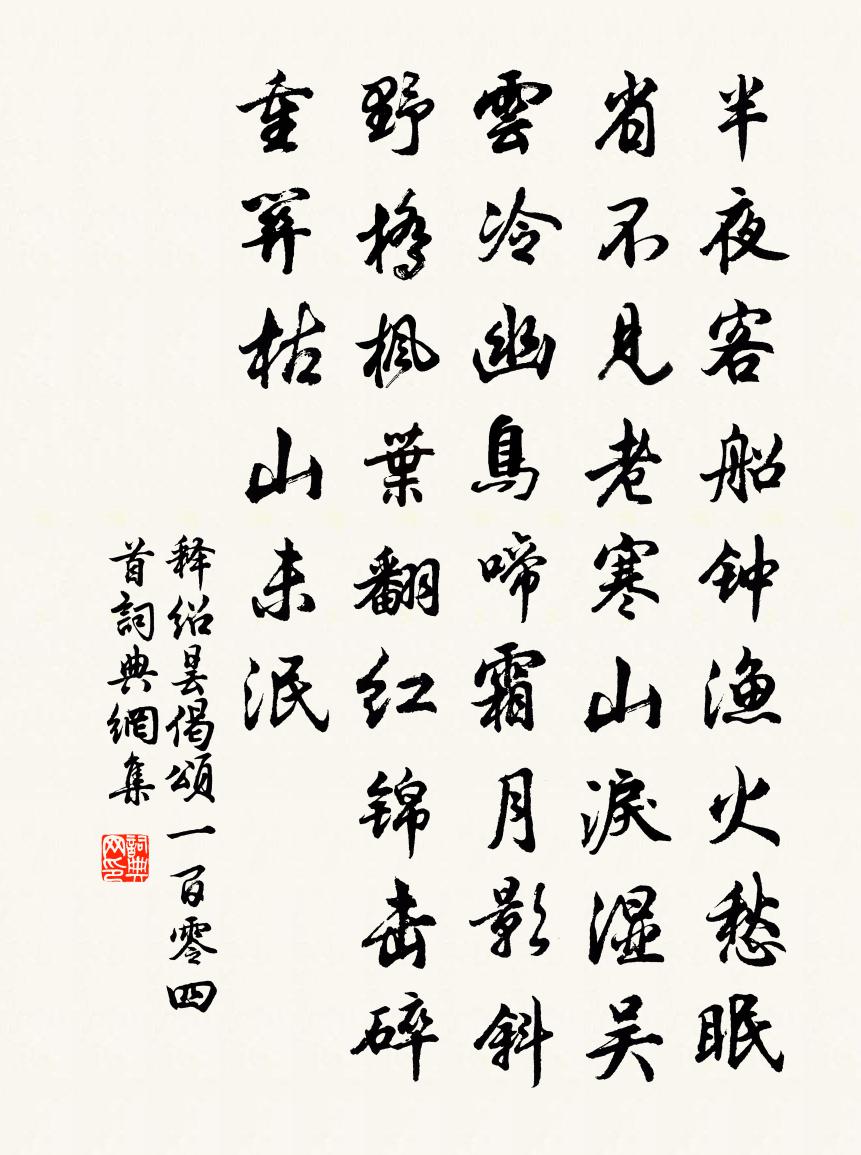 半夜客船钟渔火愁眠
省不见老寒山淚湿吴
雲冷幽鳥啼霜月影斜
野橋枫葉翻红锦击碎
重関枯山未泯
释绍昙偈頌一百零四
首詞典網集
詞典网印